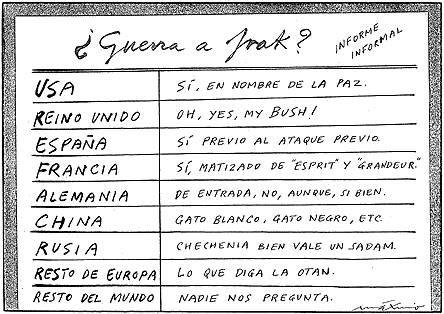 ¿Guerra a Irak?
INFORME
INFORMAL
USA SÍ, EN NOMBRE DE LA PAZ.
REINO UNIDO OH, YES, MY BUSH!
ESPAÑA SÍ PREVIO AL ATAQUE PREVIO.
FRANCIA SÍ, MATIZADO DE "ESPRIT" Y "GRANDEUR."
ALEMANIA DE ENTRADA, NO, AUNQUE, SI BIEN.
CHINA GATO BLANCO, GATO NEGRO, ETC.
RUSIA CHECHENIA BIEN VALE UN SADAM.
RESTO DE EUROPA LO QUE DIGA LA OTAN.
RESTO DEL MUNDO NADIE NOS PREGUNTA.
máximo